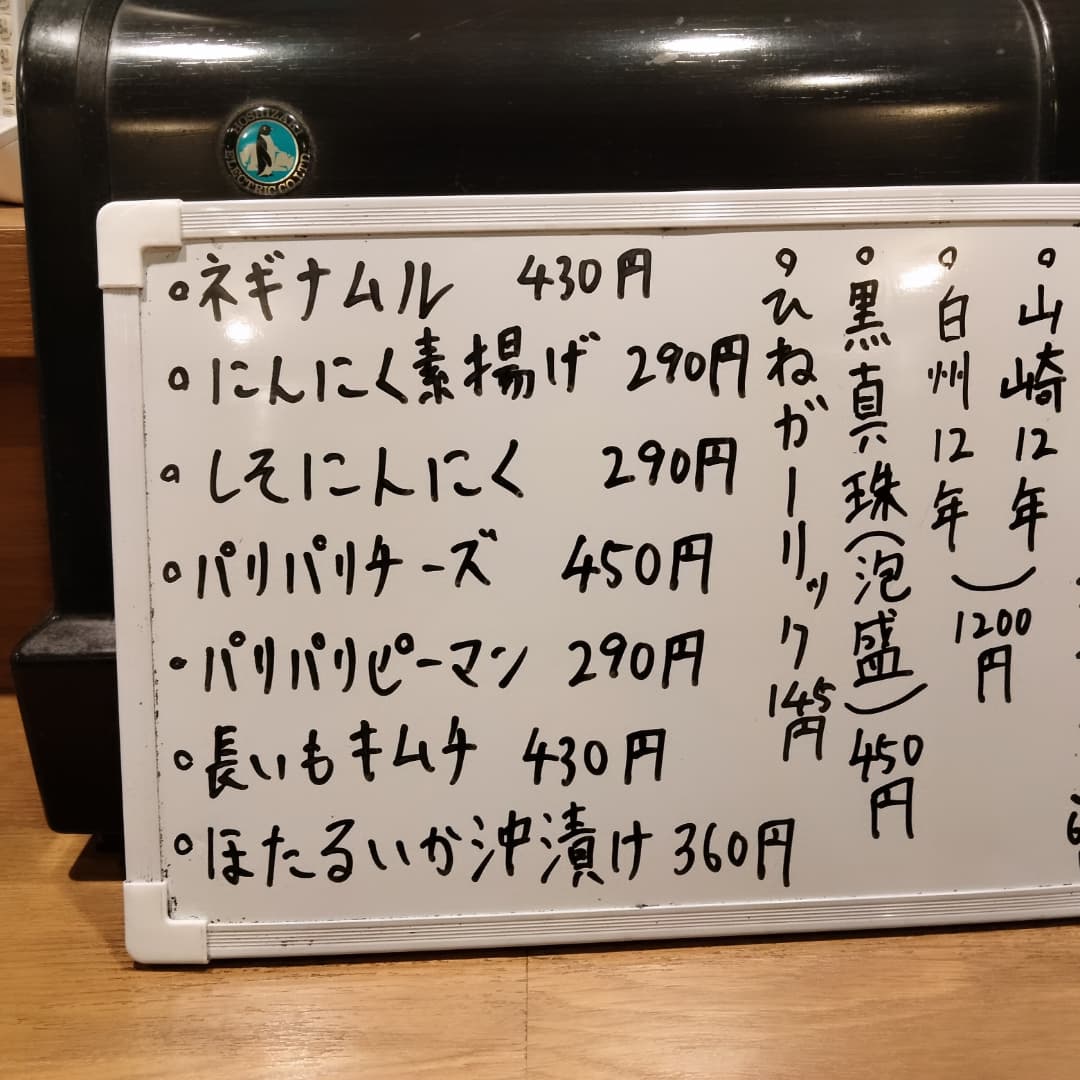 HOSHIZAKI ELECTRIC CO.LTD
ネギナムル 430円
にんにく素揚げ 290円
しそにんにく 290円
パリパリチーズ 450円
パリパリピーマン 290円
長いもキムチ 430円
ほたるいか沖漬け 360円
山崎12年
白州12年
1200円
黒真珠(泡盛) 450円
ひねガーリック 145円